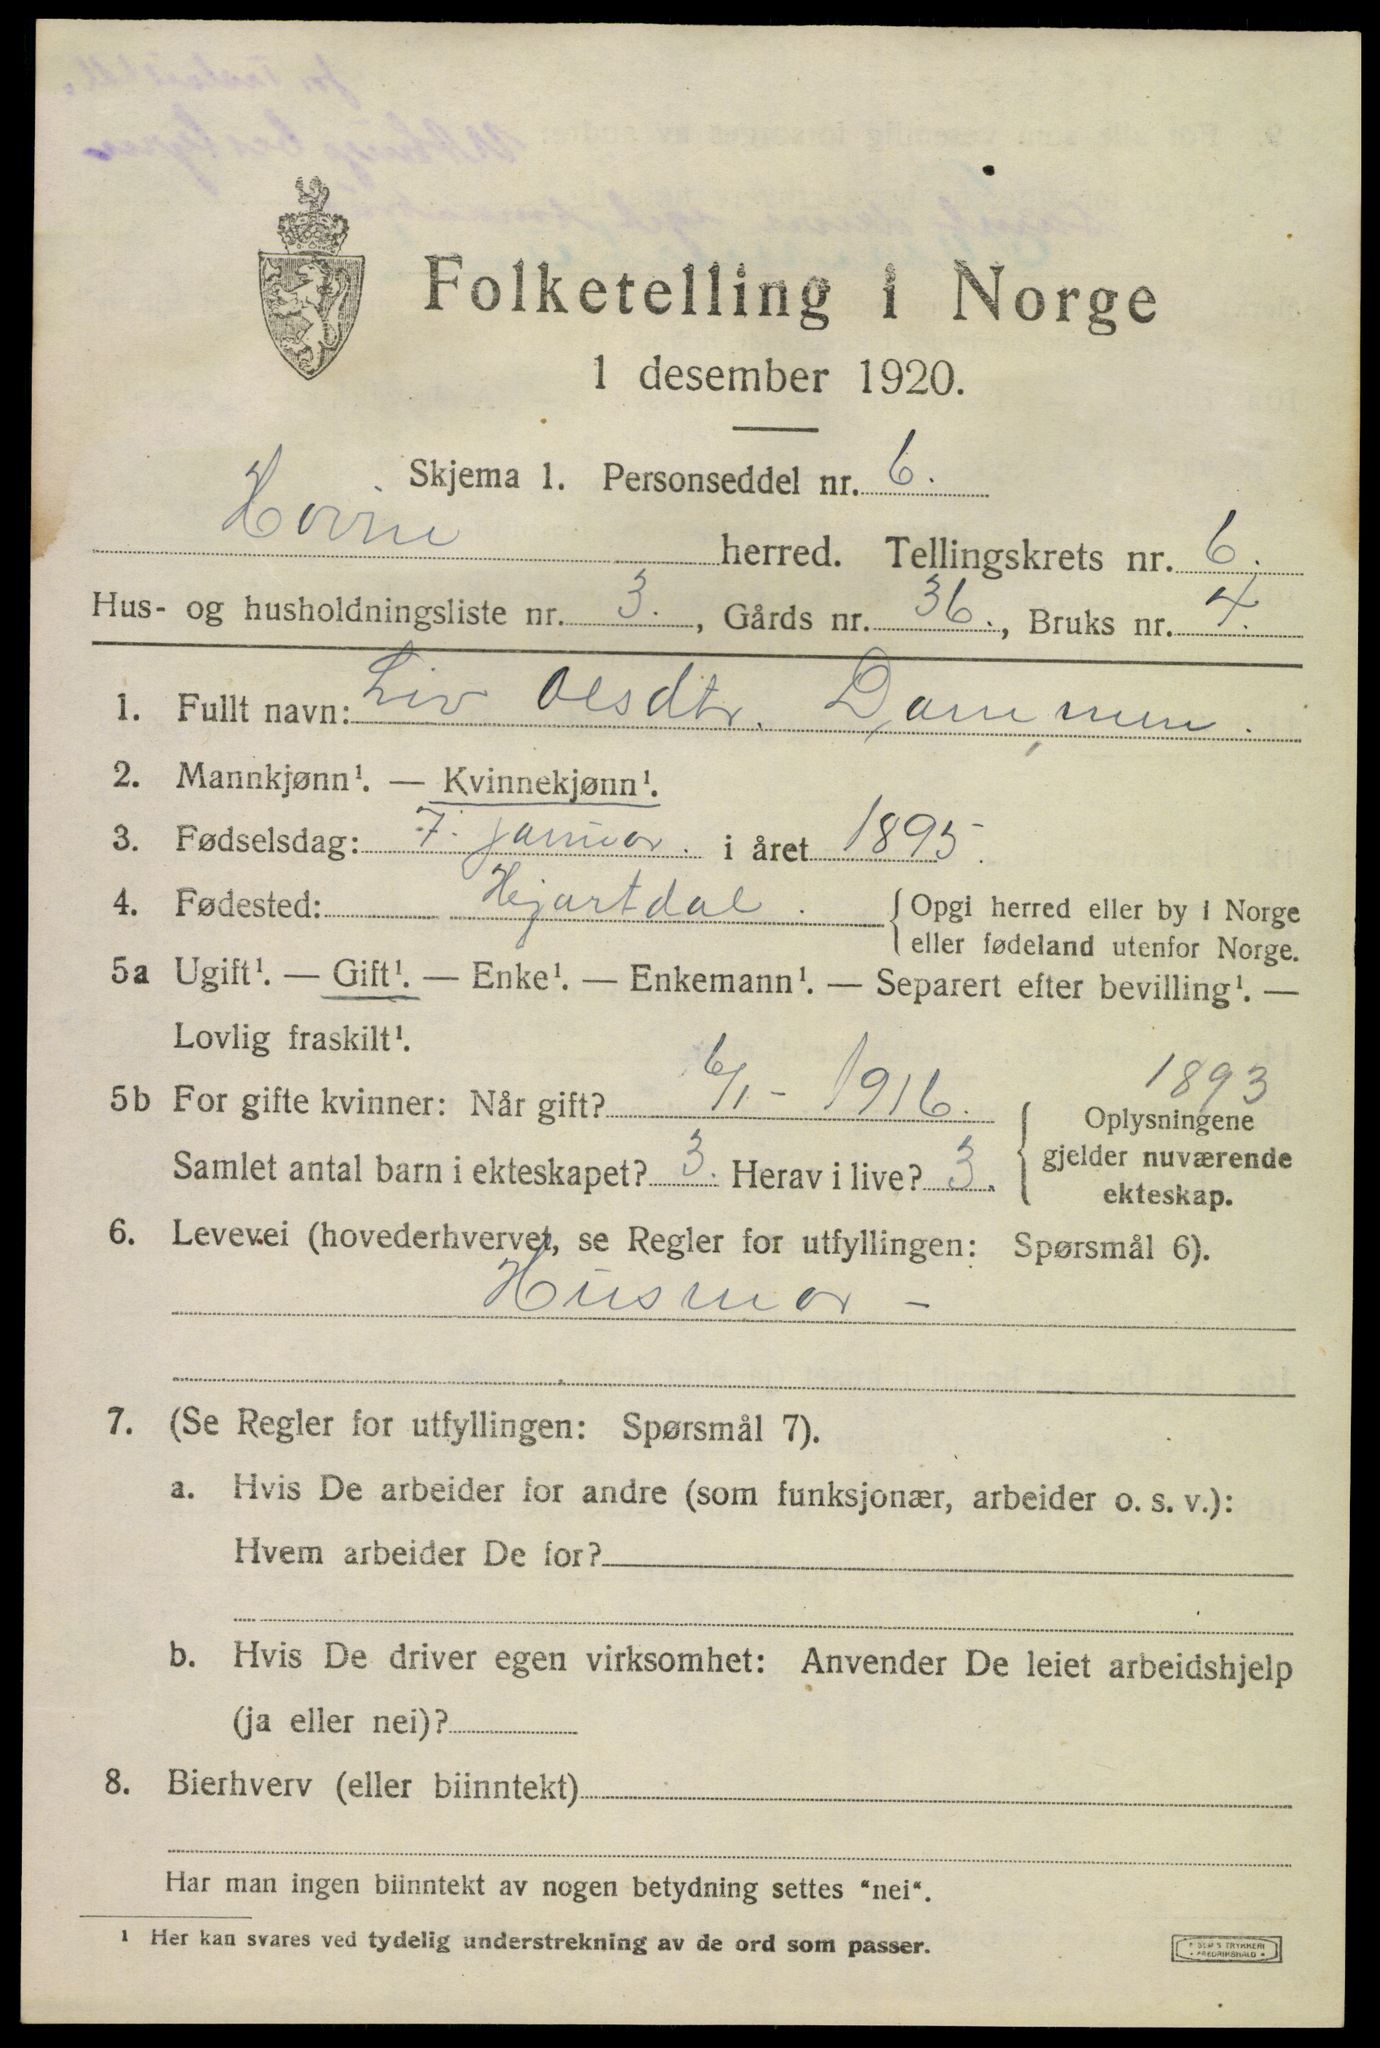 Folketelling i Norge
1 desember 1920.
Skjema 1. Personseddel nr. 6.
Hovin herred. Tellingskrets nr. 6.
Hus- og husholdningsliste nr. 3., Gårds nr. 36., Bruks nr. 4.
1. Fullt navn: Liv Olsdtr. Dammen.
2. Mannkjønn¹. — Kvinnekjønn¹.
3. Fødselsdag: 7. januar. i året 1895.
4. Fødested: Hjartdal. { Opgi herred eller by i Norge
eller fødeland utenfor Norge.
5a Ugift¹. — Gift¹. — Enke¹. — Enkemann¹. — Separert efter bevilling¹. —
Lovlig fraskilt¹.
1893
5b For gifte kvinner: Når gift? 6/1 - 1916. { Oplysningene
gjelder nuværende
ekteskap.
Samlet antal barn i ekteskapet? 3. Herav i live? 3.
6. Levevei (hovederhvervet, se Regler for utfyllingen: Spørsmål 6).
Husmor -
7. (Se Regler for utfyllingen: Spørsmål 7).
a. Hvis De arbeider for andre (som funksjonær, arbeider o. s. v.):
Hvem arbeider De for?
b. Hvis De driver egen virksomhet: Anvender De leiet arbeidshjelp
(ja eller nei)?
8. Bierhverv (eller biinntekt)
Har man ingen biinntekt av nogen betydning settes "nei".
¹ Her kan svares ved tydelig understrekning av de ord som passer.
TRYKKERI
FREDRIKSHALD